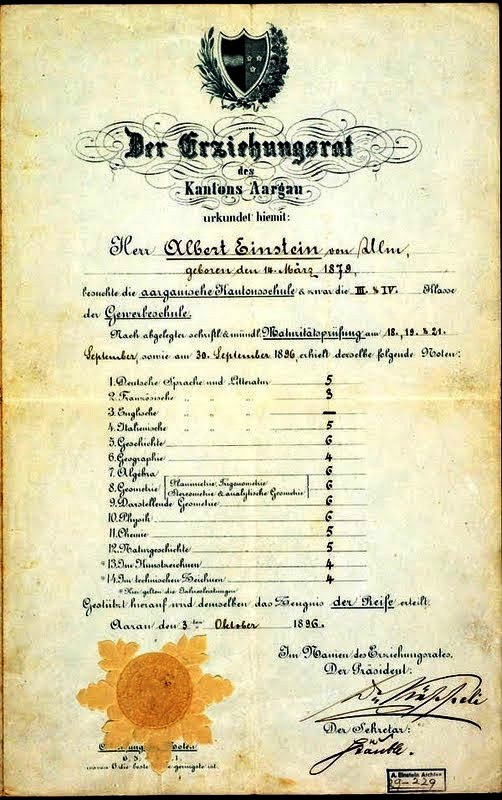 Der Erziehungsrat
des
Kantons Aargau
urkundet hiemit:
Herr Albert Einstein von Ulm,
geboren den 14. März 1879,
besuchte die aargauische Kantonsschule & zwar die III. & IV. Klasse
der Gewerbeschule.
Nach abgelegter schriftl. & mündl. Maturitätsprüfung am 18., 19. & 21.
September, sowie am 30. September 1896, erhielt derselbe folgende Noten:
1. Deutsche Sprache und Litteratur 5
2. Französische " " " 3
3. Englische " " " —
4. Italienische " " " 5
5. Geschichte 6
6. Geographie 4
7. Algebra 6
8. Geometrie Planimetrie, Trigonometrie Stereometrie & analytische Geometrie 6
9. Darstellende Geometrie 6
10. Physik 6
11. Chemie 5
12. Naturgeschichte 5
*13. Im Kunstzeichnen 4
*14. Im technischen Zeichnen 4
* Hier gelten die Jahresleistungen.
Gestützt hierauf wird demselben das Zeugnis der Reife erteilt.
Aarau den 3ten Oktober 1896.
Im Namen des Erziehungsrates,
Der Präsident:
Der Sekretär:
Noten
6, 5, 1.
wovon 6 die beste geringste ist.
A. Einstein Archive
29-229